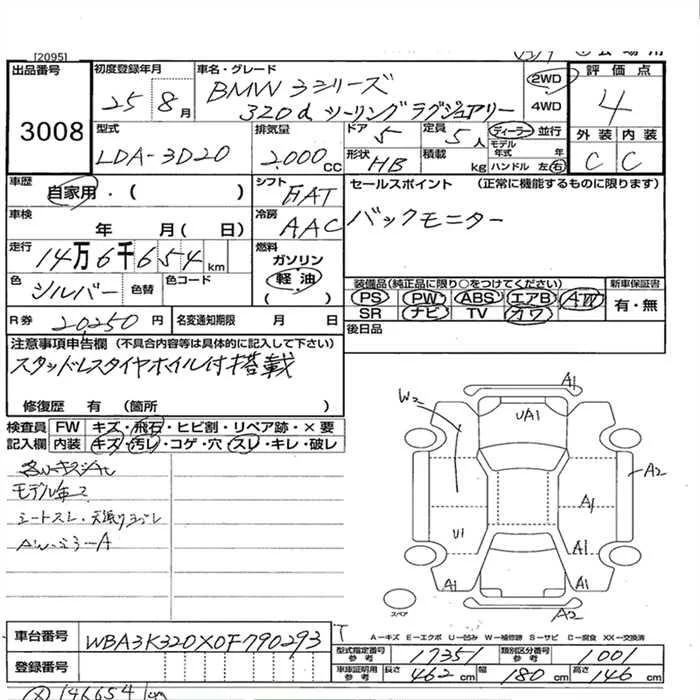 [2095]
出品番号 初度登録年月 車名・グレード 2WD 評価点
3008 25 8月 BMW 3シリーズ 4
320d ツーリングラグジュアリー 4WD
型式 排気量 ドア 定員 ディーラー 並行 外装 内装
LDA-3D20 2,000 CC 5 5人 モデル年式 年 C C
形状 HB 積載 kg ハンドル 左 右
車歴 自家用・( ) シフト FAT セールスポイント (正常に機能するものに限ります)
車検 年 月( 日) 冷房 AAC バックモニター
走行 14万6千654km 燃料 ガソリン
色 シルバー 色替 色コード 軽油 ( )
装備品(純正品に限り○をつけてください) 新車保証書
PS PW ABS エアB AW 有・無
SR ナビ TV カワ
R券 20,250円 名変通知期限 月 日 後日品
注意事項申告欄 (不具合内容等は具体的に記入して下さい)
スタッドレスタイヤホイル付搭載
修復歴 有 (箇所 )
検査員 FW キズ・飛石・ヒビ割・リペア跡・×要
記入欄 内装 キズ・汚レ・コゲ・穴・スレ・キレ・破レ
モデル年?
シートスレ・天張り
AW
W2 A1 UA1 A2 A1 U1 A1 A1 A1 A2
スペア
A—キズ E—エクボ U—凹み W—補修跡 S—サビ C—腐食 XX—交換済
車台番号 WBA3K320X0F790293
型式指定番号 参考 17351 類別区分番号 参考 1001
登録番号
車庫証明用 参考 長さ 462cm 幅 180cm 高さ 146cm
146654km